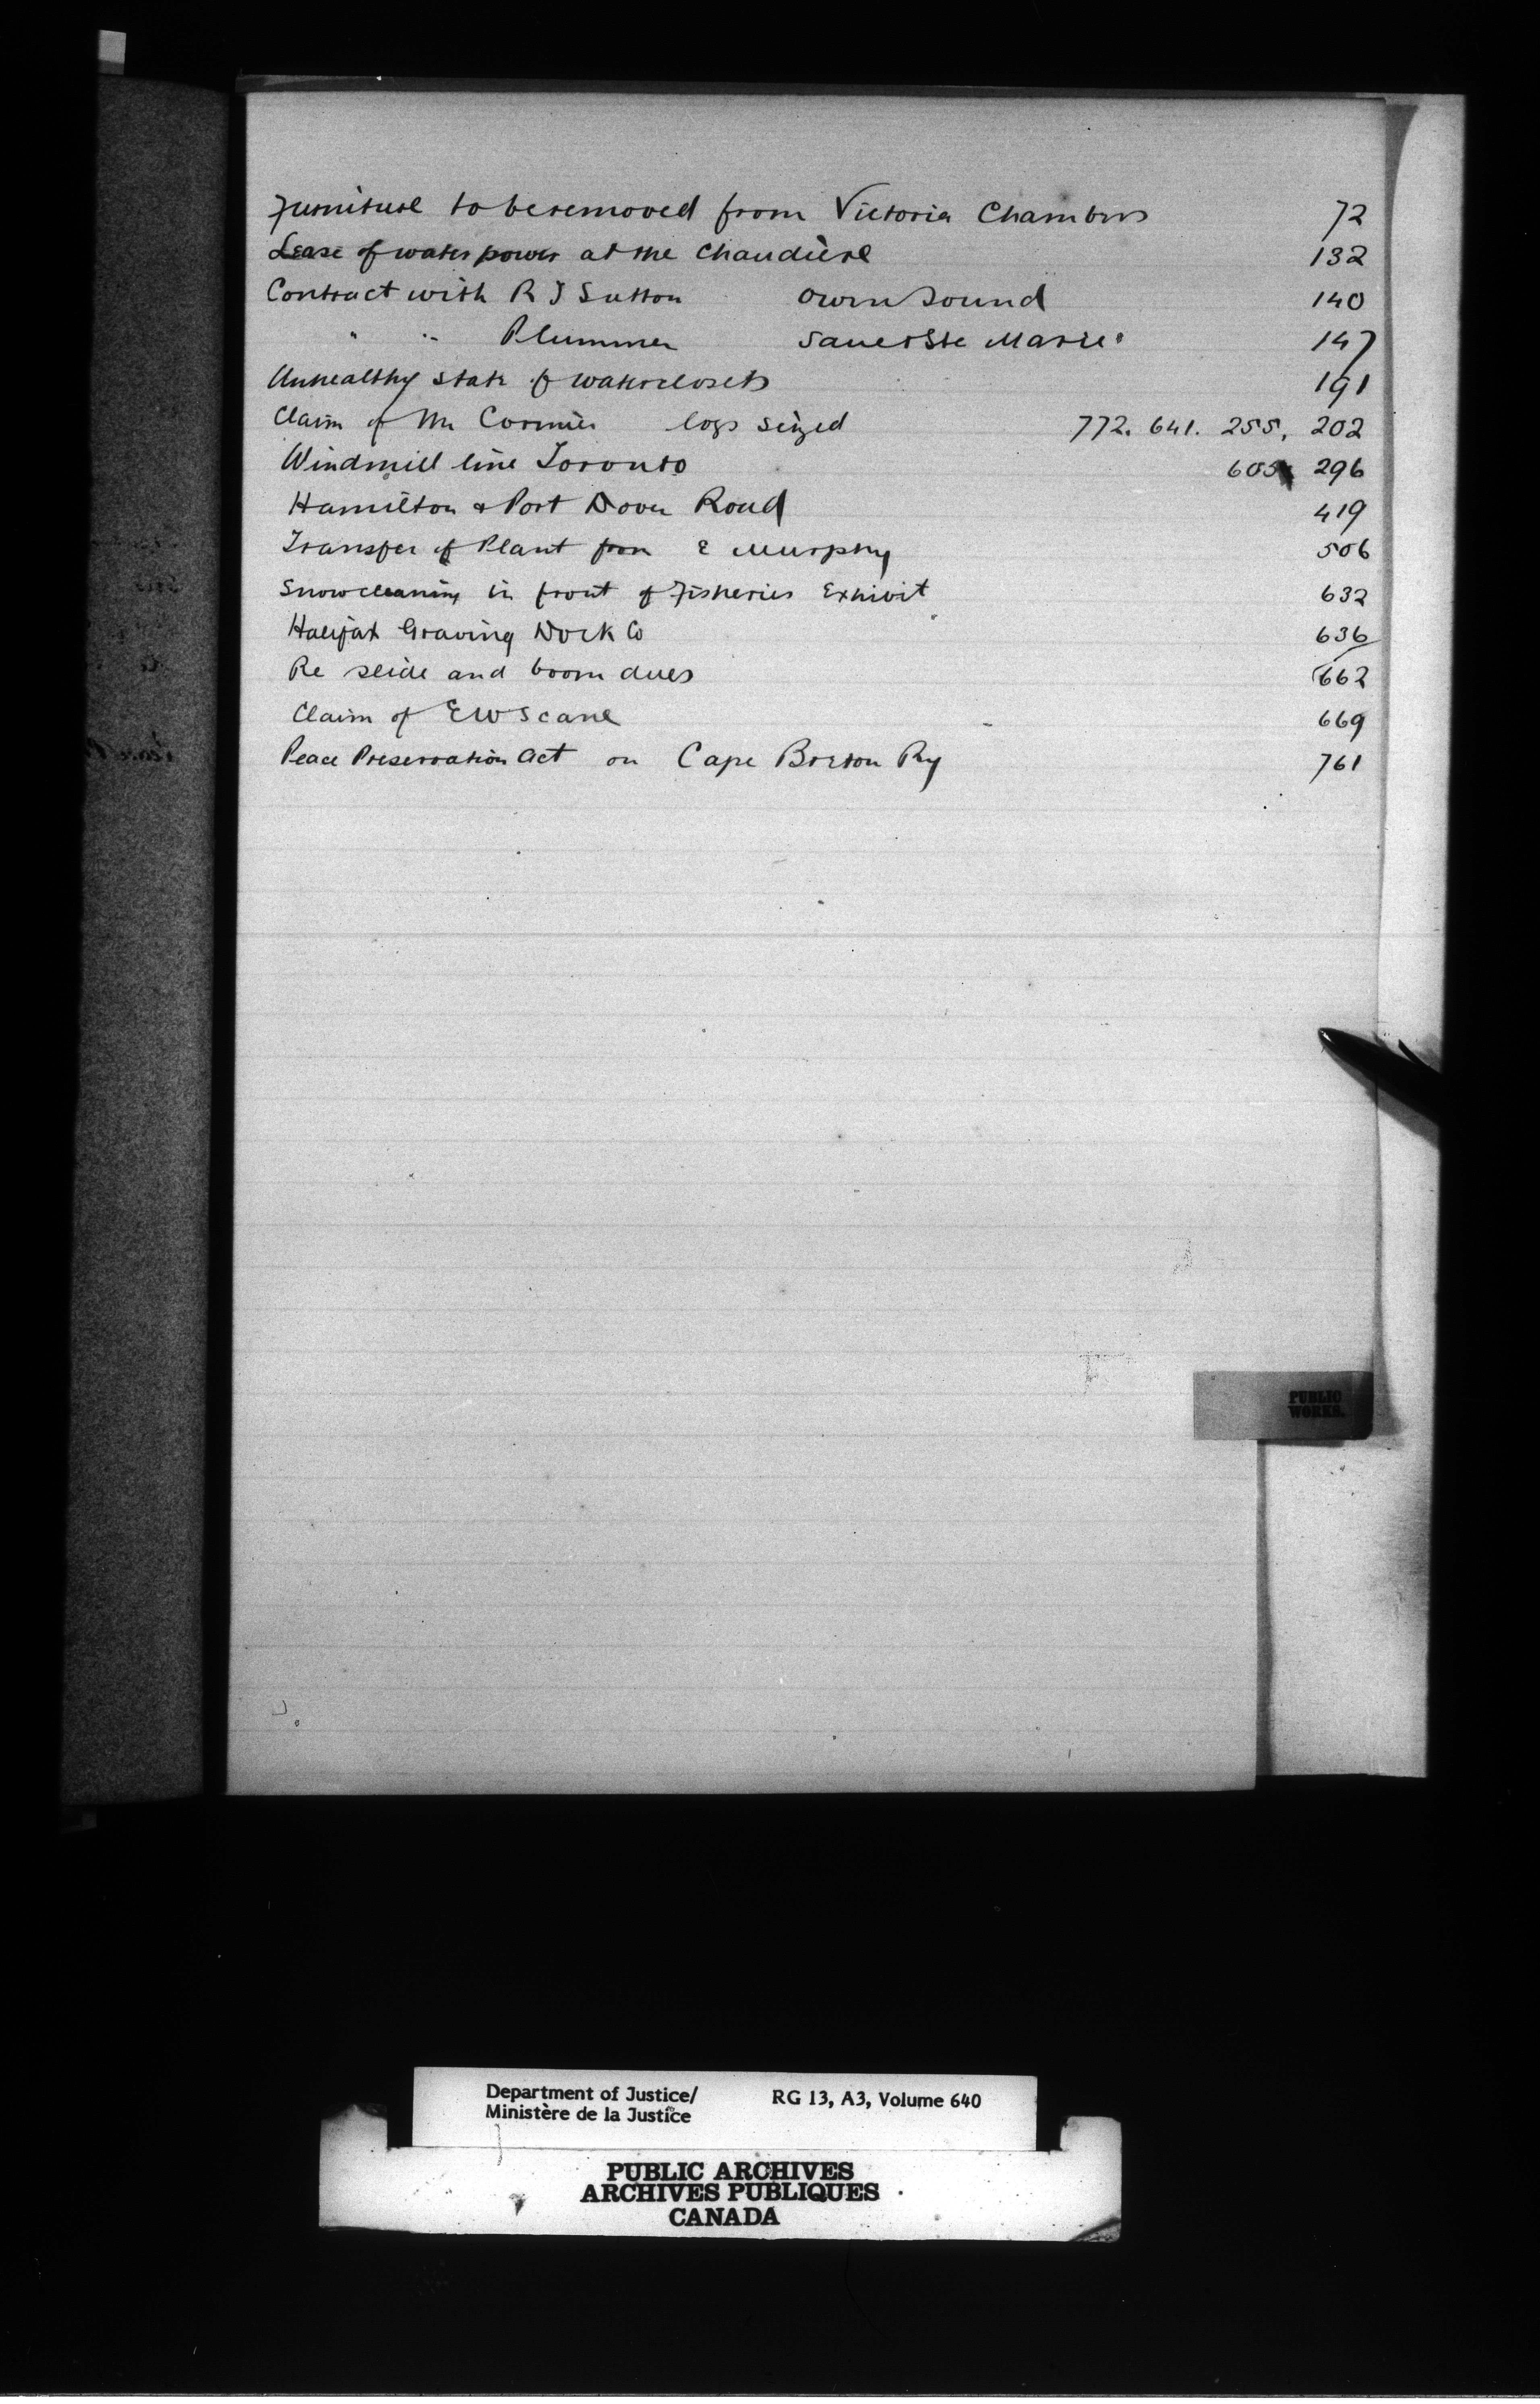 Furniture to be removed from Victoria Chambers 72
Lease of water power at the Chaudière 132
Contract with R J Sutton Owen Sound 140
" " Plummer Sault Ste Marie 147
Unhealthy state of waterclosets 191
Claim of Mr Cormier logs seized 772. 641. 255, 202
Windmill line Toronto 605 296
Hamilton & Port Dover Road 419
Transfer of Plant from E Murphy 506
Snowcleaning in front of Fisheries Exhibit 632
Halifax Graving Dock Co 636
Re slide and boom dues 662
Claim of E W Scane 669
Peace Preservation Act on Cape Breton Ry 761
PUBLIC
WORKS.
Department of Justice/ RG 13, A3, Volume 640
Ministère de la Justice
PUBLIC ARCHIVES
ARCHIVES PUBLIQUES
CANADA